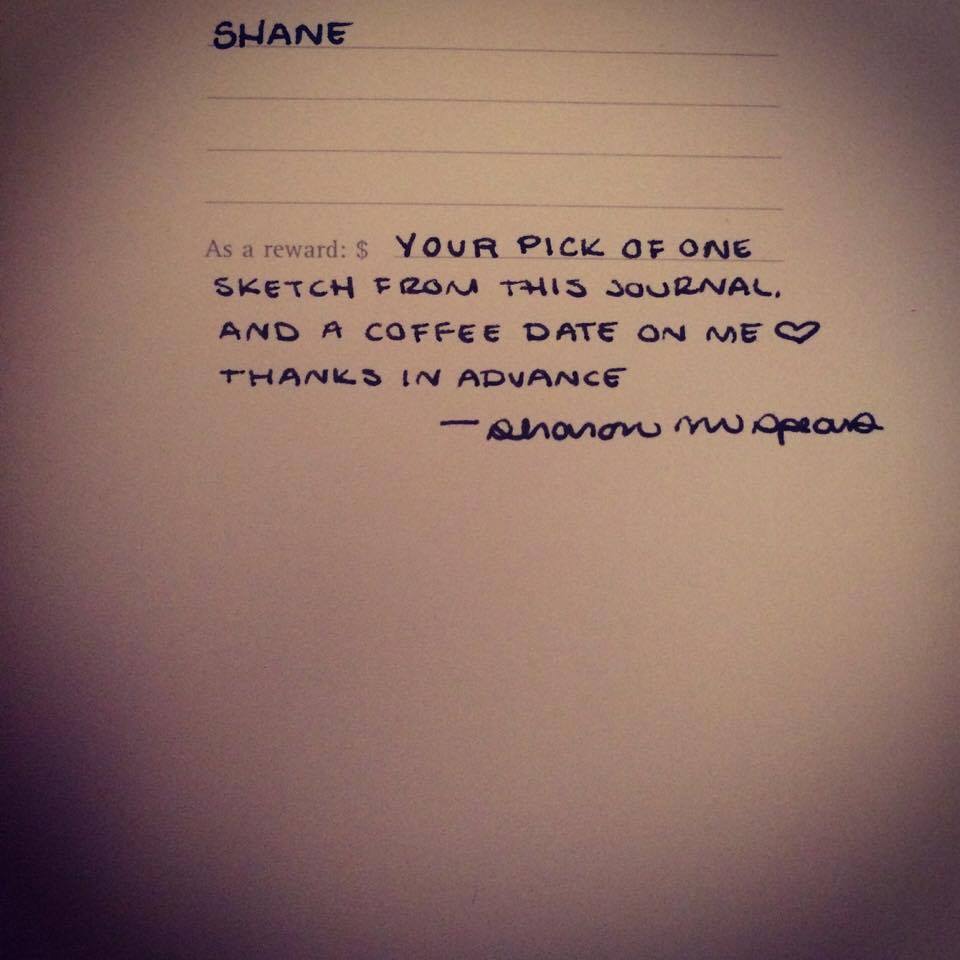 SHANE
As a reward: $ YOUR PICK OF ONE
SKETCH FROM THIS JOURNAL.
AND A COFFEE DATE ON ME ♡
THANKS IN ADVANCE
— Sharon